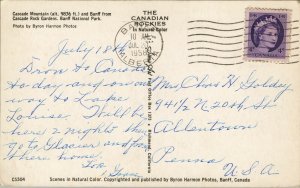 Cascade Mountain (alt. 9836 ft.) and Banff from
Cascade Rock Gardens, Banff National Park.
Photo by Byron Harmon Photos
THE
CANADIAN
ROCKIES
In Natural Color
July 18th
Drove to Canada
to day and on our
way to Lake
Louise. Will be
here 2 nights then
go to Glacier and from
there home.
Mrs. Chas H. Golday
941½ N 20th St
Allentown
Penna
U.S.A.
C5304
Scenes in Natural Color. Copyrighted and published by Byron Harmon Photos, Banff, Canada